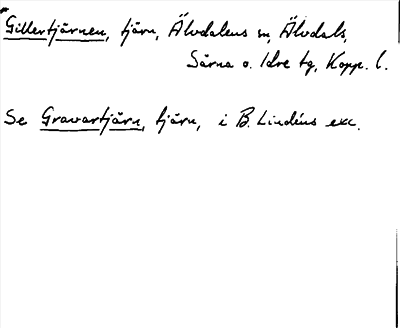 Gillertjärnen, tjärn, Älvdalens sn, Älvdals,
Särna o. Idre tg, Kopp. l.
Se Gravartjärn, tjärn, i B. Lindéns exc.